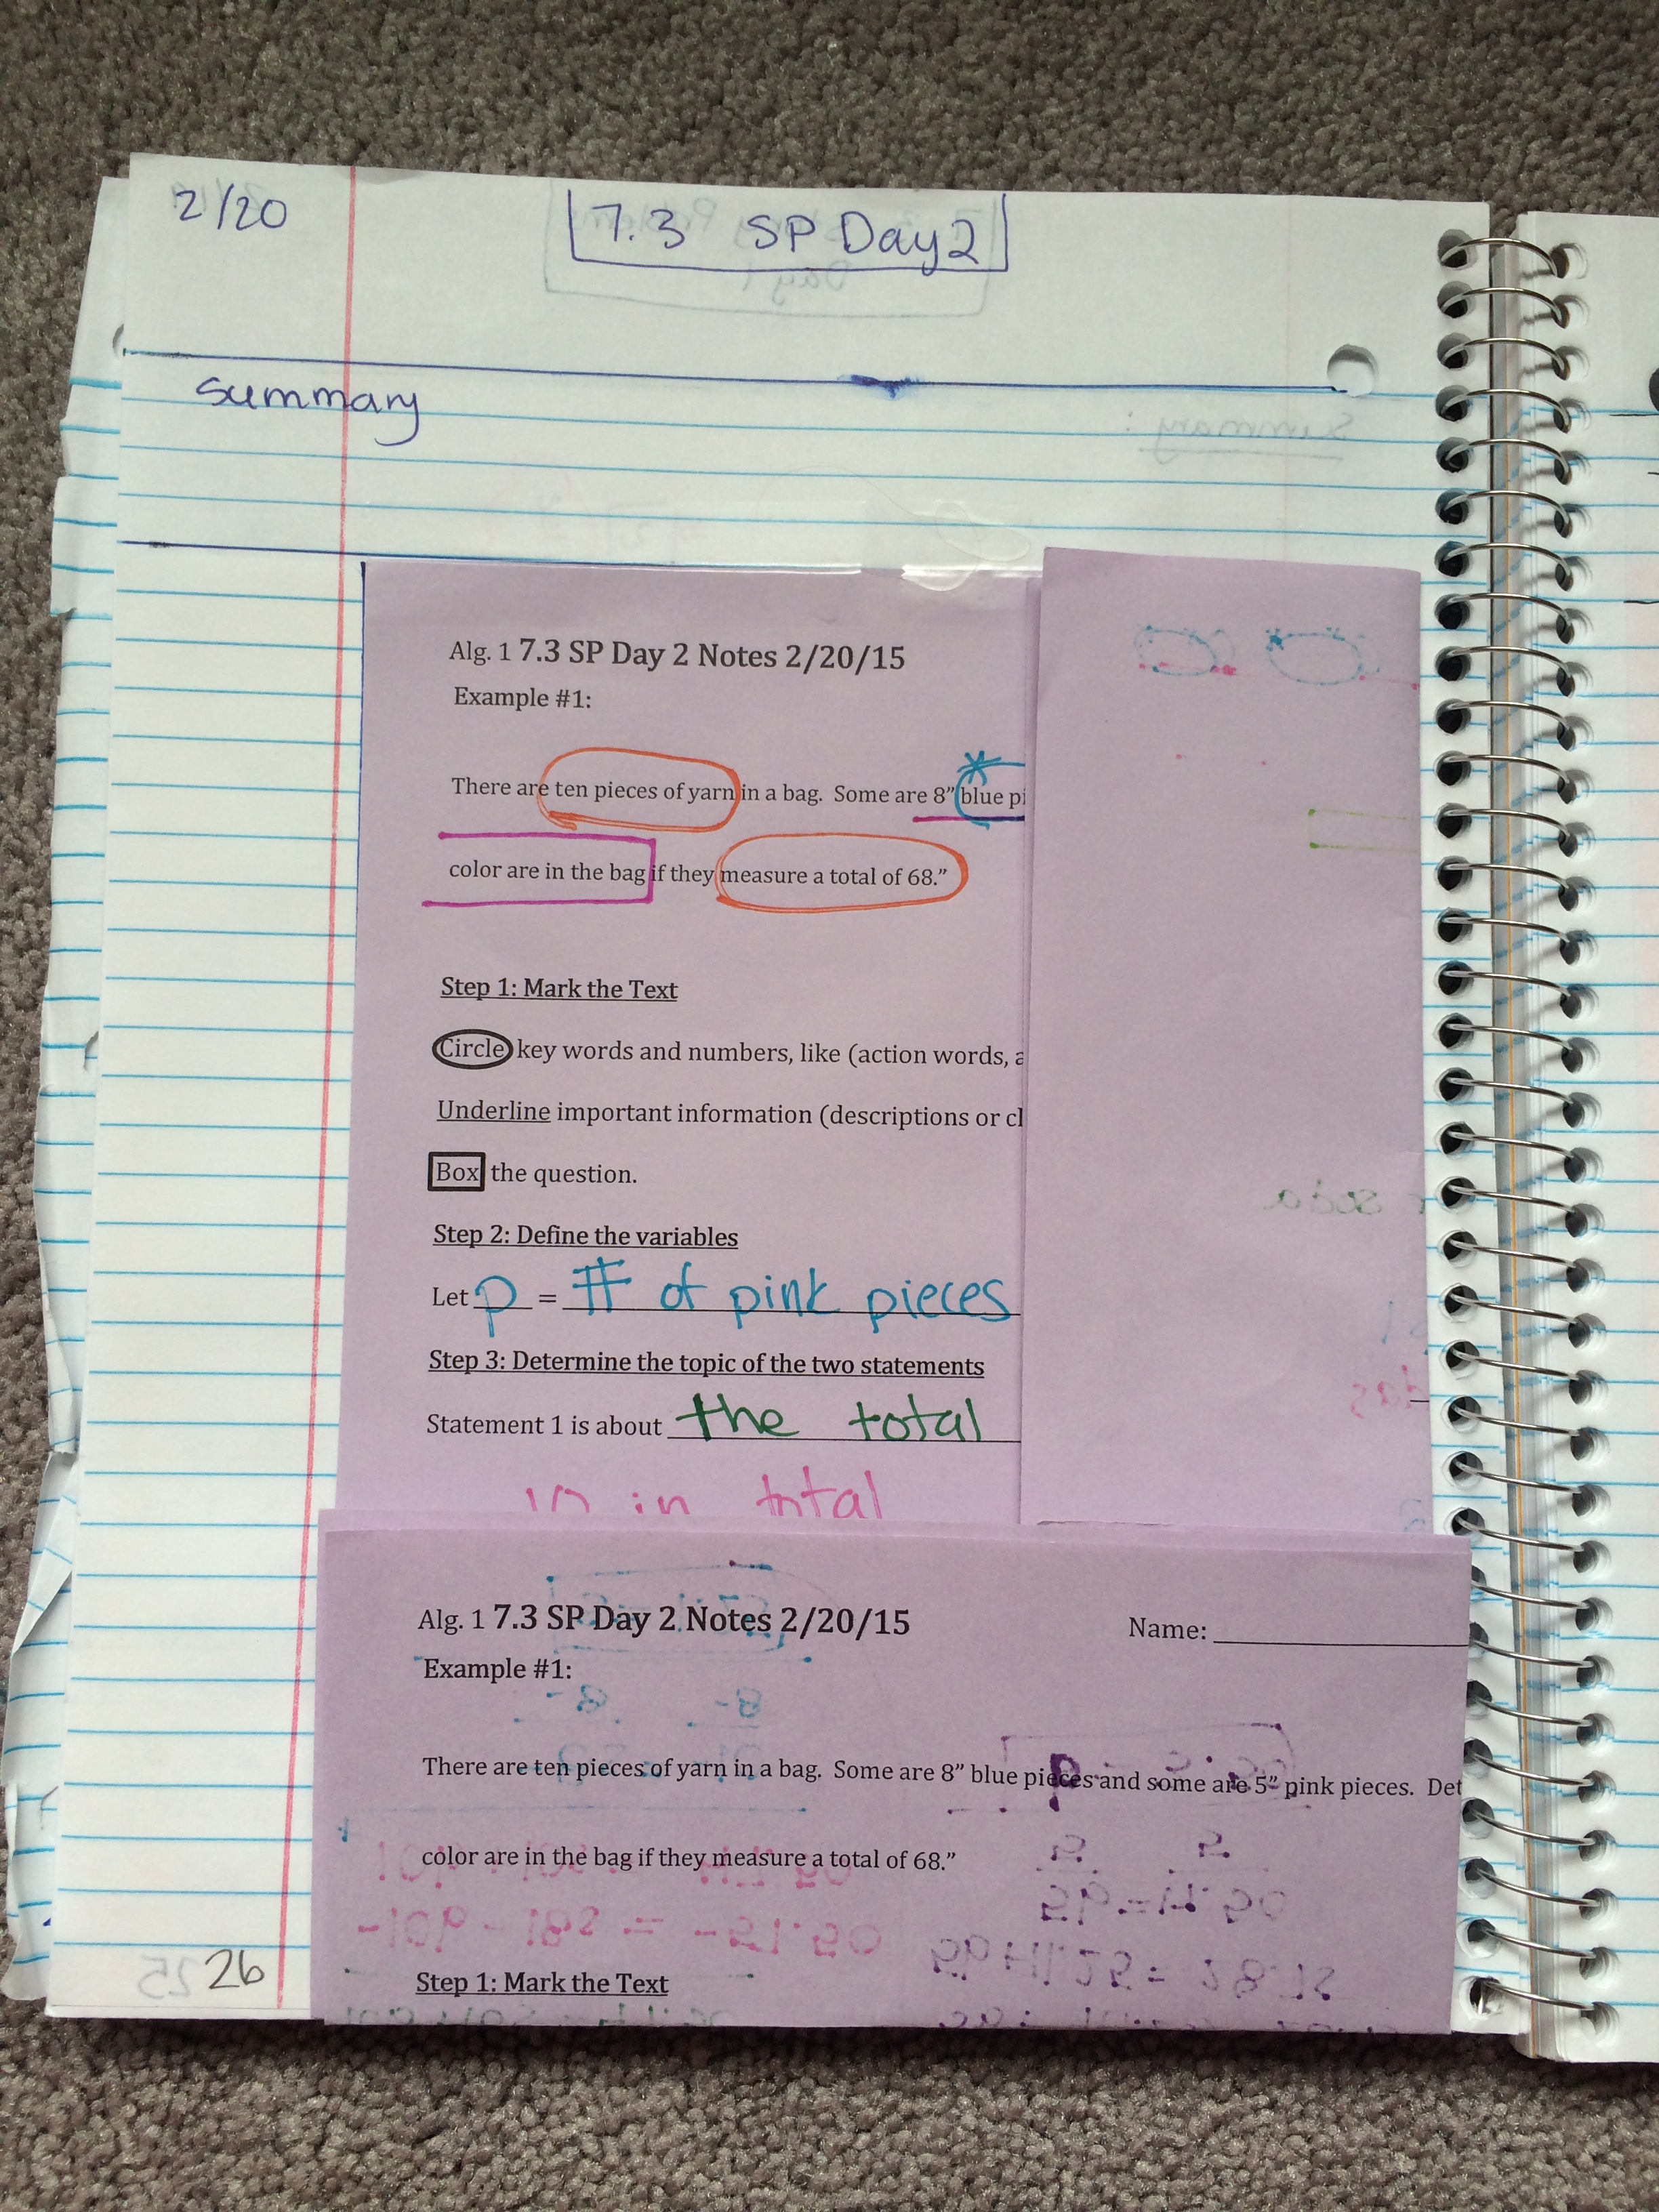 2/20
7.3 SP Day 2
summary
Alg. 1 7.3 SP Day 2 Notes 2/20/15
Example #1:
There are ten pieces of yarn in a bag. Some are 8” blue pi
color are in the bag if they measure a total of 68.”
Step 1: Mark the Text
Circle key words and numbers, like (action words, a
Underline important information (descriptions or cl
Box the question.
Step 2: Define the variables
Let p = # of pink pieces
Step 3: Determine the topic of the two statements
Statement 1 is about the total
in total
Alg. 1 7.3 SP Day 2 Notes 2/20/15
Name:
Example #1:
There are ten pieces of yarn in a bag. Some are 8” blue pieces and some are 5” pink pieces. Det
color are in the bag if they measure a total of 68.”
Step 1: Mark the Text
26